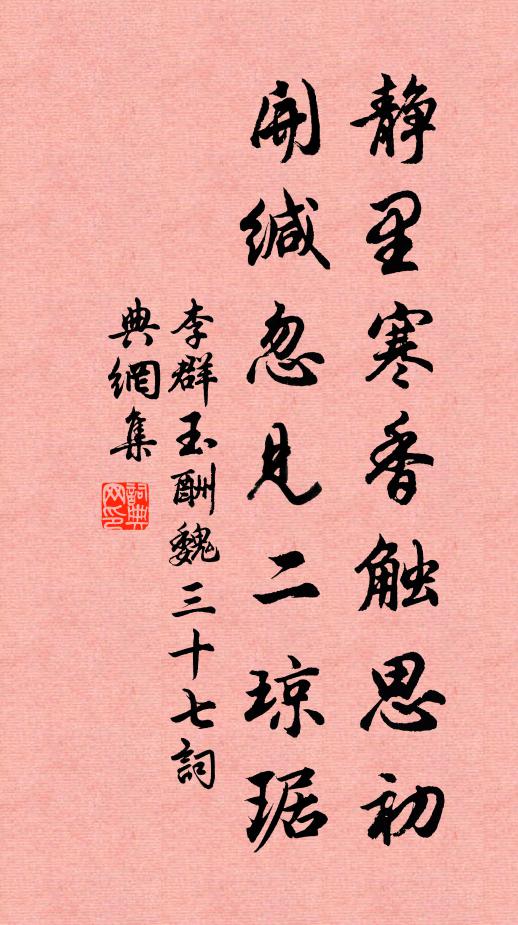 静里寒香触思初
開缄忽見二琼琚
李群玉酬魏三十七詞
典網集
詞典
网印